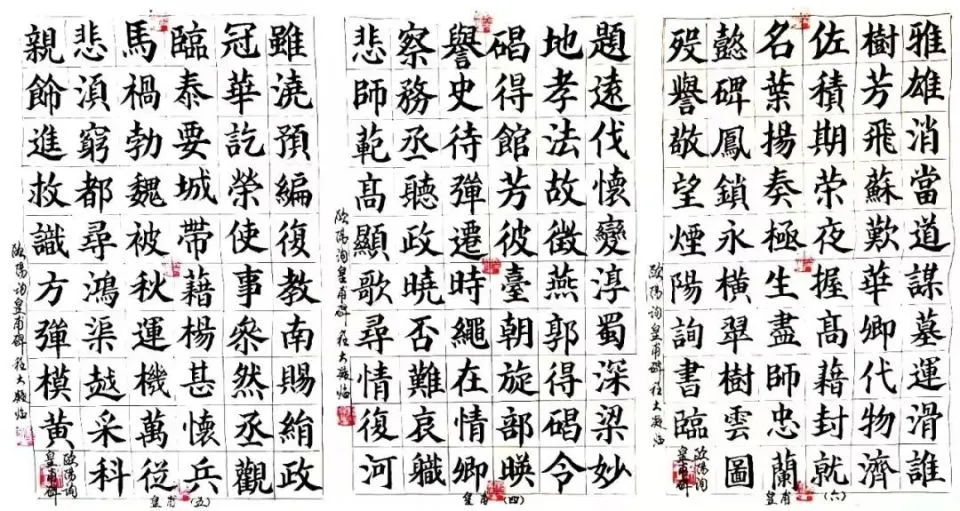 雖澆預編復教南賜絹政
冠華訖榮使事叅然丞觀
臨泰要城帶藉楊甚懷兵
馬禍勃魏被秋運機萬從
悲湏窮都尋鴻渠越采科
親飾進救識方彈模黃
歐陽詢
皇甫碑
歐陽詢皇甫碑
皇甫(五)
題遠伐懷變淳蜀深梁妙
地孝法故徵燕郭得碣令
碣得館芳彼臺朝旋部暎
譽史待彈遷時繩在情卿
察務丞聽政曉否難哀職
悲師範高顯歌尋情復河
歐陽詢皇甫碑
皇甫(四)
雅雄消當道謀墓運滑誰
樹芳飛蘇歎華卿代物濟
佐積期荣夜握高藉封就
名葉揚奏極生盡師忠蘭
懿碑鳳鎖永橫翠樹雲圖
歿譽敬望煙陽詢書臨
歐陽詢
皇甫碑
歐陽詢皇甫碑
皇甫(六)